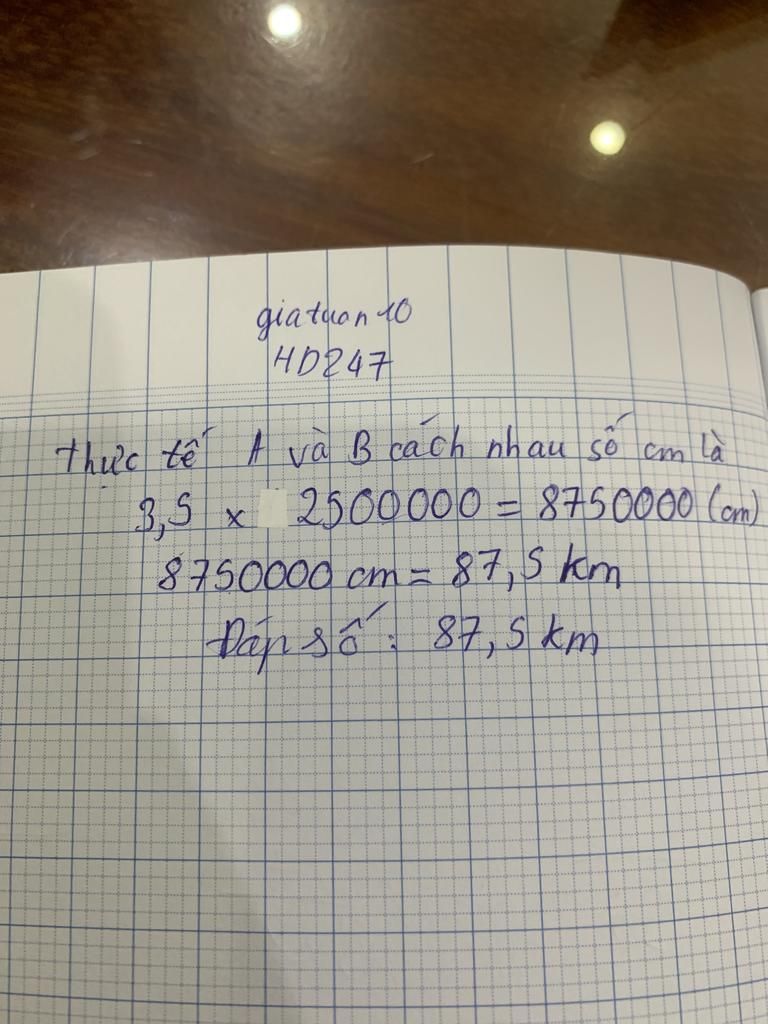 giatuan10
HD247
thực tế A và B cách nhau số cm là
3,5 x 2500000 = 8750000 (cm)
8750000 cm = 87,5 km
Đáp số : 87,5 km